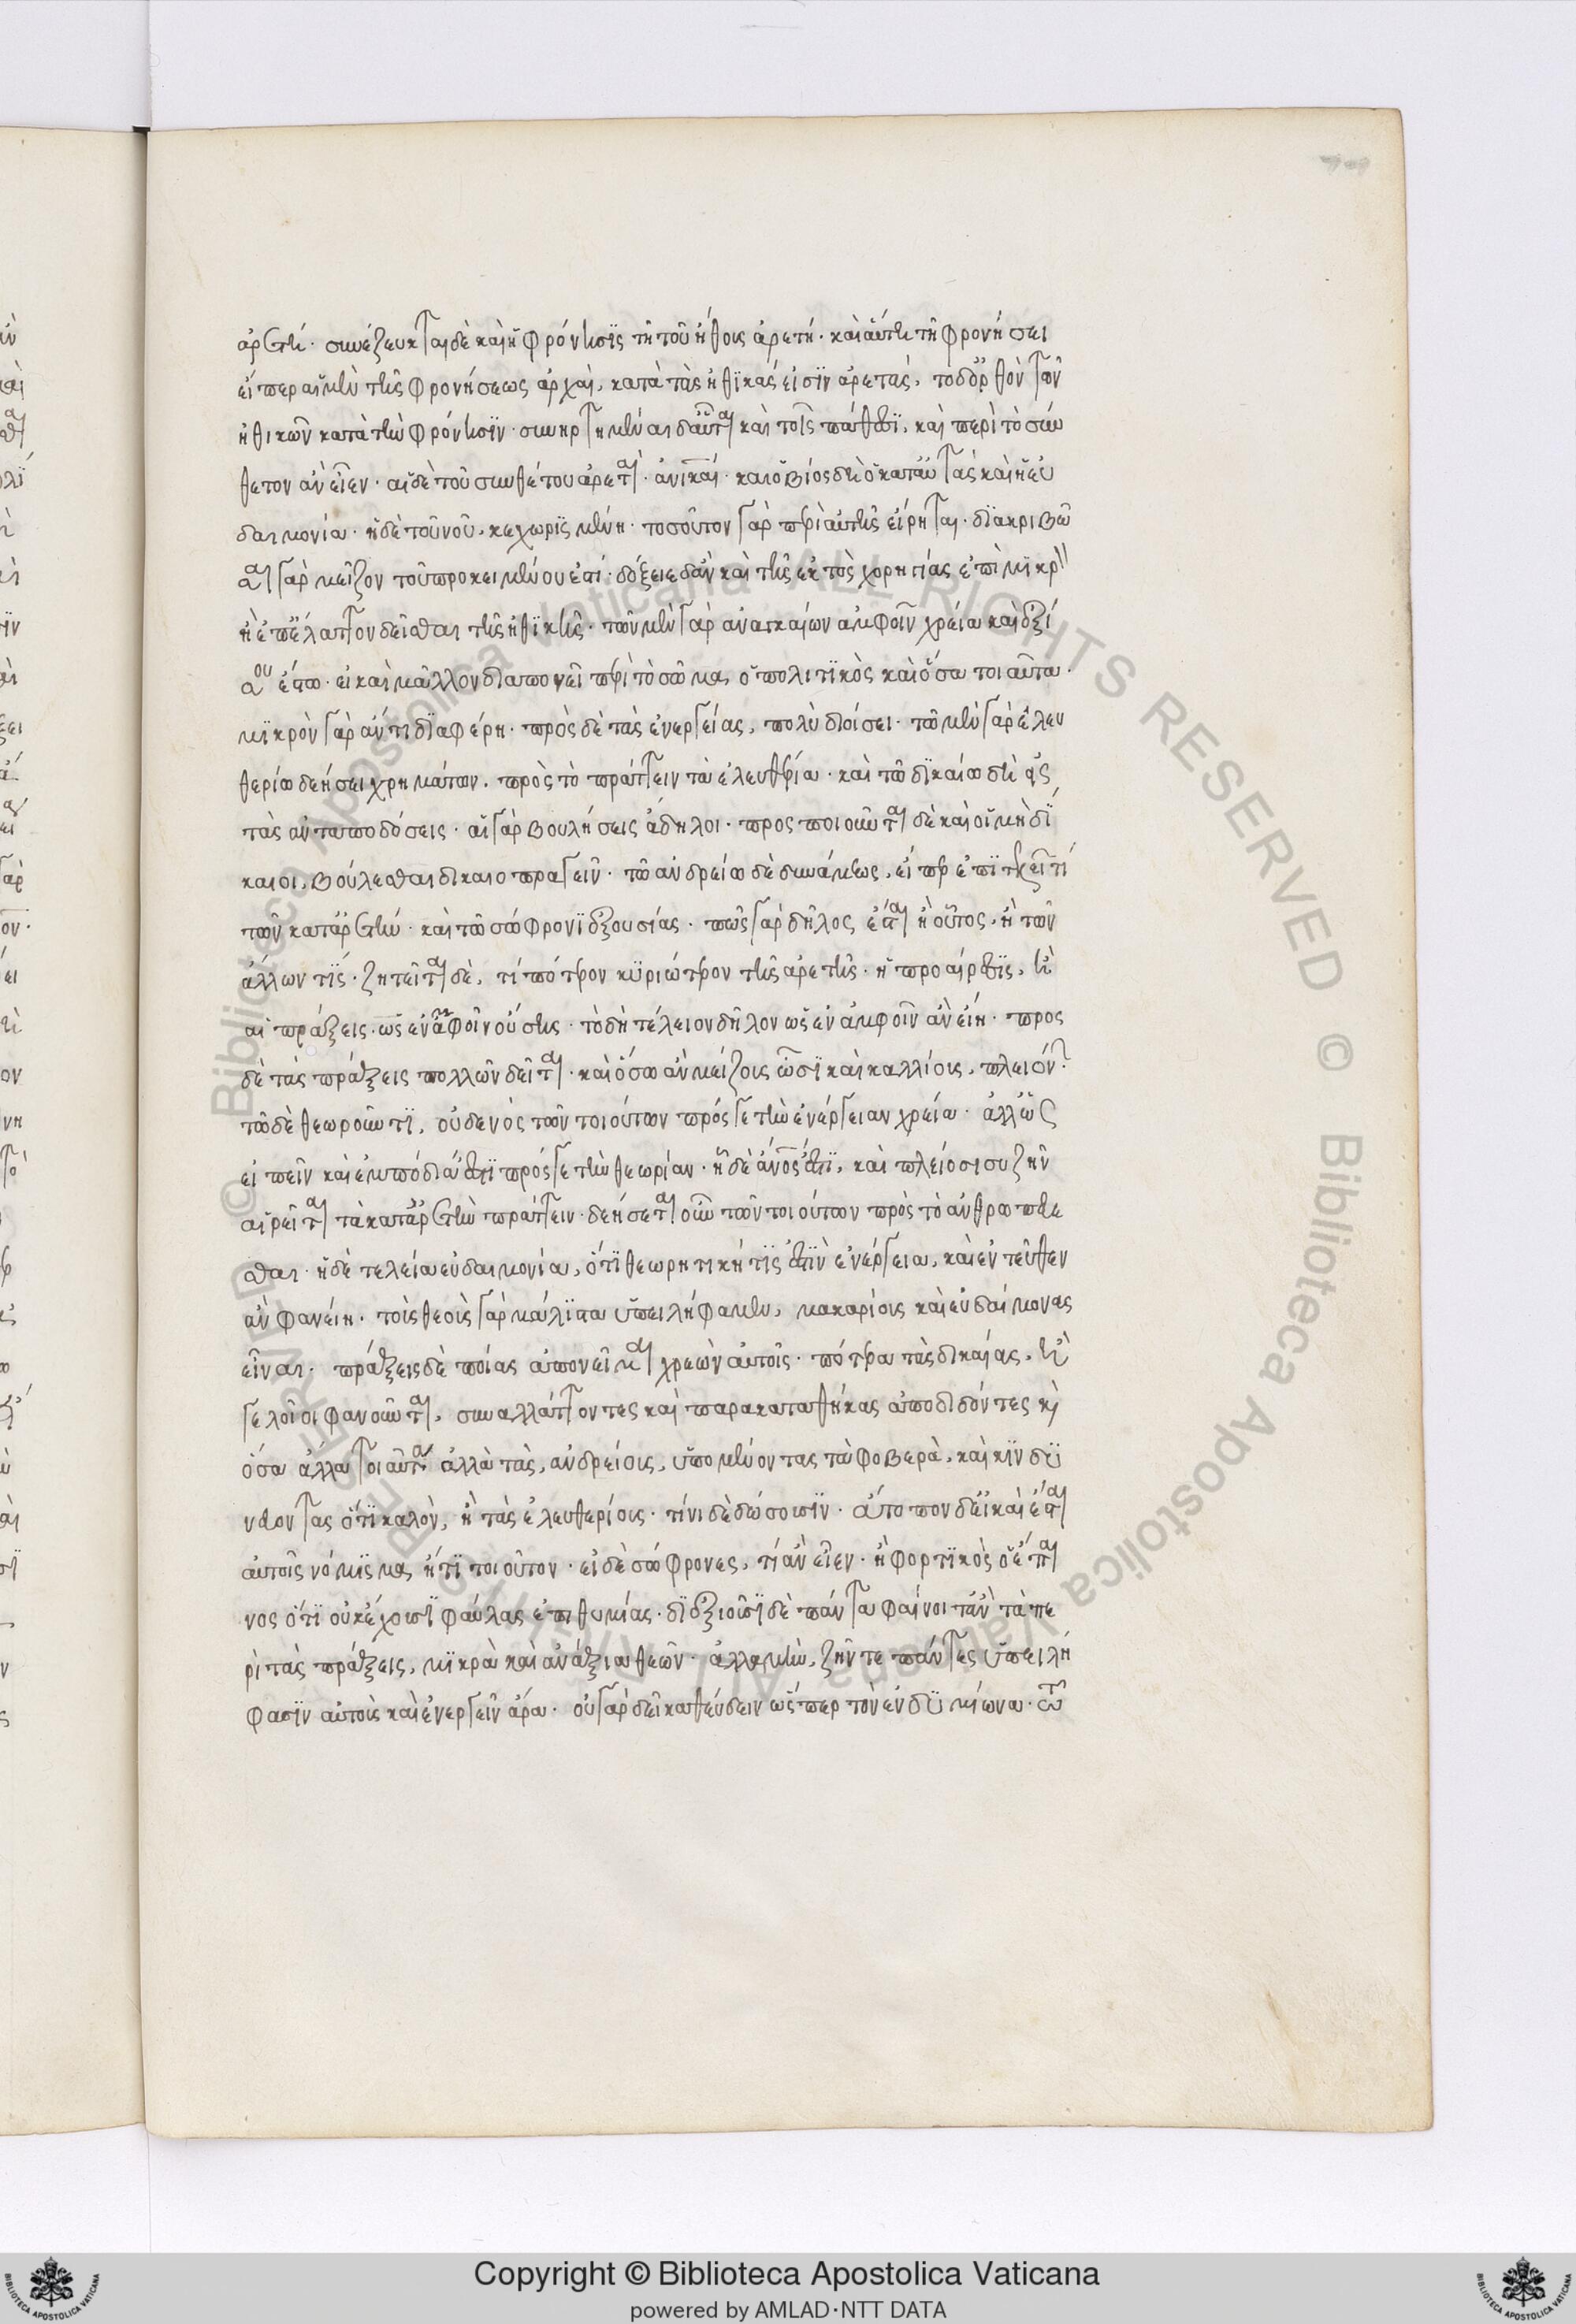 ἀρετή· συνέζευκται δὲ καὶ ἡ φρόνησϊς τῇ τοῦ ἤθους ἀρετῇ· καὶ αὕτη τῇ φρονήσει
εἴπερ αἱ μὲν τῆς φρονήσεως ἀρχαὶ, κατὰ τὰς ἠθϊκάς εἰσϊν ἀρετάς, τὸ δ' ὀρθὸν τῶν
ἠθικῶν κατὰ τὴν φρόνησϊν· συνηρτημέναι δ' αὗται καὶ τοῖς πάθεσϊ, καὶ περὶ τὸ σύν
θετον ἂν εἶεν· αἱ δὲ τοῦ συνθέτου ἀρεταὶ· ἀνικαί· καὶ ὁ βίος δὴ ὁ κατ' αὐτὰς καὶ ἡ εὐ
δαιμονία· ἡ δὲ τοῦ νοῦ, κεχωρϊσμένη· τοσοῦτον γὰρ περὶ αὐτῆς εἰρήσται· δϊακριβῶ
σαι γὰρ μεῖζον τοῦ προκειμένου ἐστί· δόξειε δ' ἂν καὶ τῆς ἐκτὸς χορηγίας ἐπὶ μϊκρὸν
ἢ ἐπ' ἔλαττον δεῖσθαι τῆς ἠθϊκῆς· τῶν μὲν γὰρ ἀναγκαίων ἀμφοῖν χρεία καὶ ἐξί
σου ἔστω· εἰ καὶ μᾶλλον διαπονεῖ περὶ τὸ σῶμα, ὁ πολιτϊκὸς καὶ ὅσα τοιαῦτα·
μϊκρὸν γὰρ ἄν τι δϊαφέρη· πρὸς δὲ τὰς ἐνεργείας, πολὺ διοίσει· τῶ μὲν γὰρ ἐλευ
θερίω δεήσει χρημάτων, πρὸς τὸ πράττειν τὰ ἐλευθέρια· καὶ τῶ δϊκαίω δὴ εἰς
τὰς ἀνταποδόσεις· αἱ γὰρ βουλήσεις ἄδηλοι· προσποιοῦνται δὲ καὶ οἱ μὴ δί
καιοι, βούλεσθαι δικαιοπραγεῖν· τῶ ἀνδρείω δὲ δυνάμεως, εἴπερ ἐπϊτελεῖ τί
τῶν κατ' ἀρετήν· καὶ τῶ σώφρονϊ ἐξουσίας· πῶς γὰρ δῆλος ἔσται ἢ οὗτος, ἢ τῶν
ἄλλων τίς· ζητεῖται δὲ, τί πότερον κϋριώτερον τῆς ἀρετῆς· ἡ προαίρεσϊς, ἢ
αἱ πράξεις· ὡς ἐν ἀμφοῖν οὔσης· τὸ δὴ τέλειον δῆλον ὡς ἐν ἀμφοῖν ἂν εἴη· προς
δὲ τὰς πράξεις πολλῶν δεῖται· καὶ ὅσω ἂν μείζους ὦσϊ καὶ καλλίους, πλειόνων·
τῶ δὲ θεωροῦντϊ, οὐδενὸς τῶν τοιούτων πρός γε τὴν ἐνέργειαν χρεία· ἀλλ' ὡς
εἰπεῖν καὶ ἐμπόδιά ἐστϊ πρός γε τὴν θεωρίαν· ᾗ δὲ ἄνός ἐστϊ, καὶ πλείοσι συζῆν
αἱρεῖται τὰ κατ' ἀρετὴν πράττειν· δεήσεται οὖν τῶν τοιούτων πρὸς τὸ ἀνθρωπεύε
σθαι· ἡ δὲ τελεία εὐδαιμονία, ὅτϊ θεωρητική τϊς ἐστϊν ἐνέργεια, καὶ ἐντεῦθεν
ἂν φανείη· τοὺς θεοὺς γὰρ μάλϊστα ὑπειλήφαμεν, μακαρίους καὶ εὐδαίμονας
εἶναι· πράξεις δὲ ποίας ἀπονεῖμαι χρεὼν αὐτοῖς· πότερα τὰς δικαίας, ἢ
γελοῖοι φανοῦνται, συναλλάττοντες καὶ παρακαταθήκας ἀποδιδόντες κὶ
ὅσα ἄλλα τοιαῦτα ἀλλὰ τὰς, ἀνδρείους, ὑπομένοντας τὰ φοβερὰ, καὶ κϊνδϋ
νεύοντας ὅτϊ καλὸν, ἢ τὰς ἐλευθερίους· τίνι δὲ δώσουσϊν· ἄτοπον δ' εἰ καὶ ἔσται
αὐτοῖς νόμϊσμα, ἤ τϊ τοιοῦτον· εἰ δὲ σώφρονες, τί ἂν εἶεν· ἢ φορτϊκὸς ὁ ἔπαι
νος ὅτϊ οὐκ ἔχουσϊ φαύλας ἐπιθυμίας· δϊεξιοῦσϊ δὲ πάντα φαίνοιτ' ἂν τὰ πε
ρὶ τὰς πράξεις, μϊκρὰ καὶ ἀνάξια θεῶν· ἀλλὰ μὴν, ζῆν τε πάντες ὑπειλή
φασϊν αὐτοὺς καὶ ἐνεργεῖν ἄρα· οὐ γὰρ δεῖ καθεύδειν ὥσπερ τὸν ἐνδϋμίωνα· τῶ
Copyright © Biblioteca Apostolica Vaticana
powered by AMLAD·NTT DATA